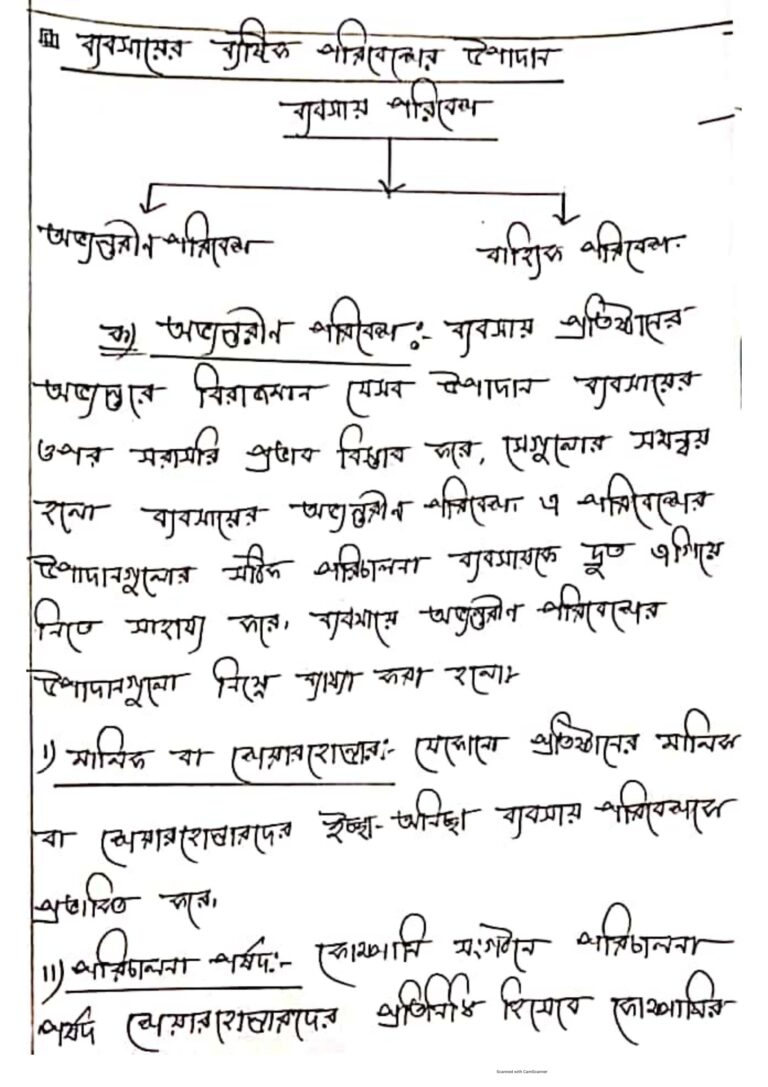 ব্যবসায়ের বাহ্যিক পরিবেশের উপাদান
ব্যবসায় পরিবেশ
অভ্যন্তরীন পরিবেশ
বাহ্যিক পরিবেশ
ক) অভ্যন্তরীন পরিবেশ:- ব্যবসায় প্রতিষ্ঠানের
অভ্যন্তরে বিরাজমান যেসব উপাদান ব্যবসায়ের
ওপর সরাসরি প্রভাব বিস্তার করে, সেগুলোর সমন্বয়
হলো ব্যবসায়ের অভ্যন্তরীন পরিবেশ। এ পরিবেশের
উপাদানগুলোর সঠিক পরিচালনা ব্যবসায়কে দ্রুত এগিয়ে
নিতে সাহায্য করে। ব্যবসায়ে অভ্যন্তরীন পরিবেশের
উপাদানগুলো নিম্নে ব্যাখ্যা করা হলো:
i) মালিক বা শেয়ারহোল্ডার:- যেকোনো প্রতিষ্ঠানের মালিক
বা শেয়ারহোল্ডারদের ইচ্ছা-অনিচ্ছা ব্যবসায় পরিবেশকে
প্রভাবিত করে।
ii) পরিচালনা পর্ষদ:- কোম্পানি সংগঠনে পরিচালনা
পর্ষদ শেয়ারহোল্ডারদের প্রতিনিধি হিসেবে কোম্পানির
Scanned with CamScanner